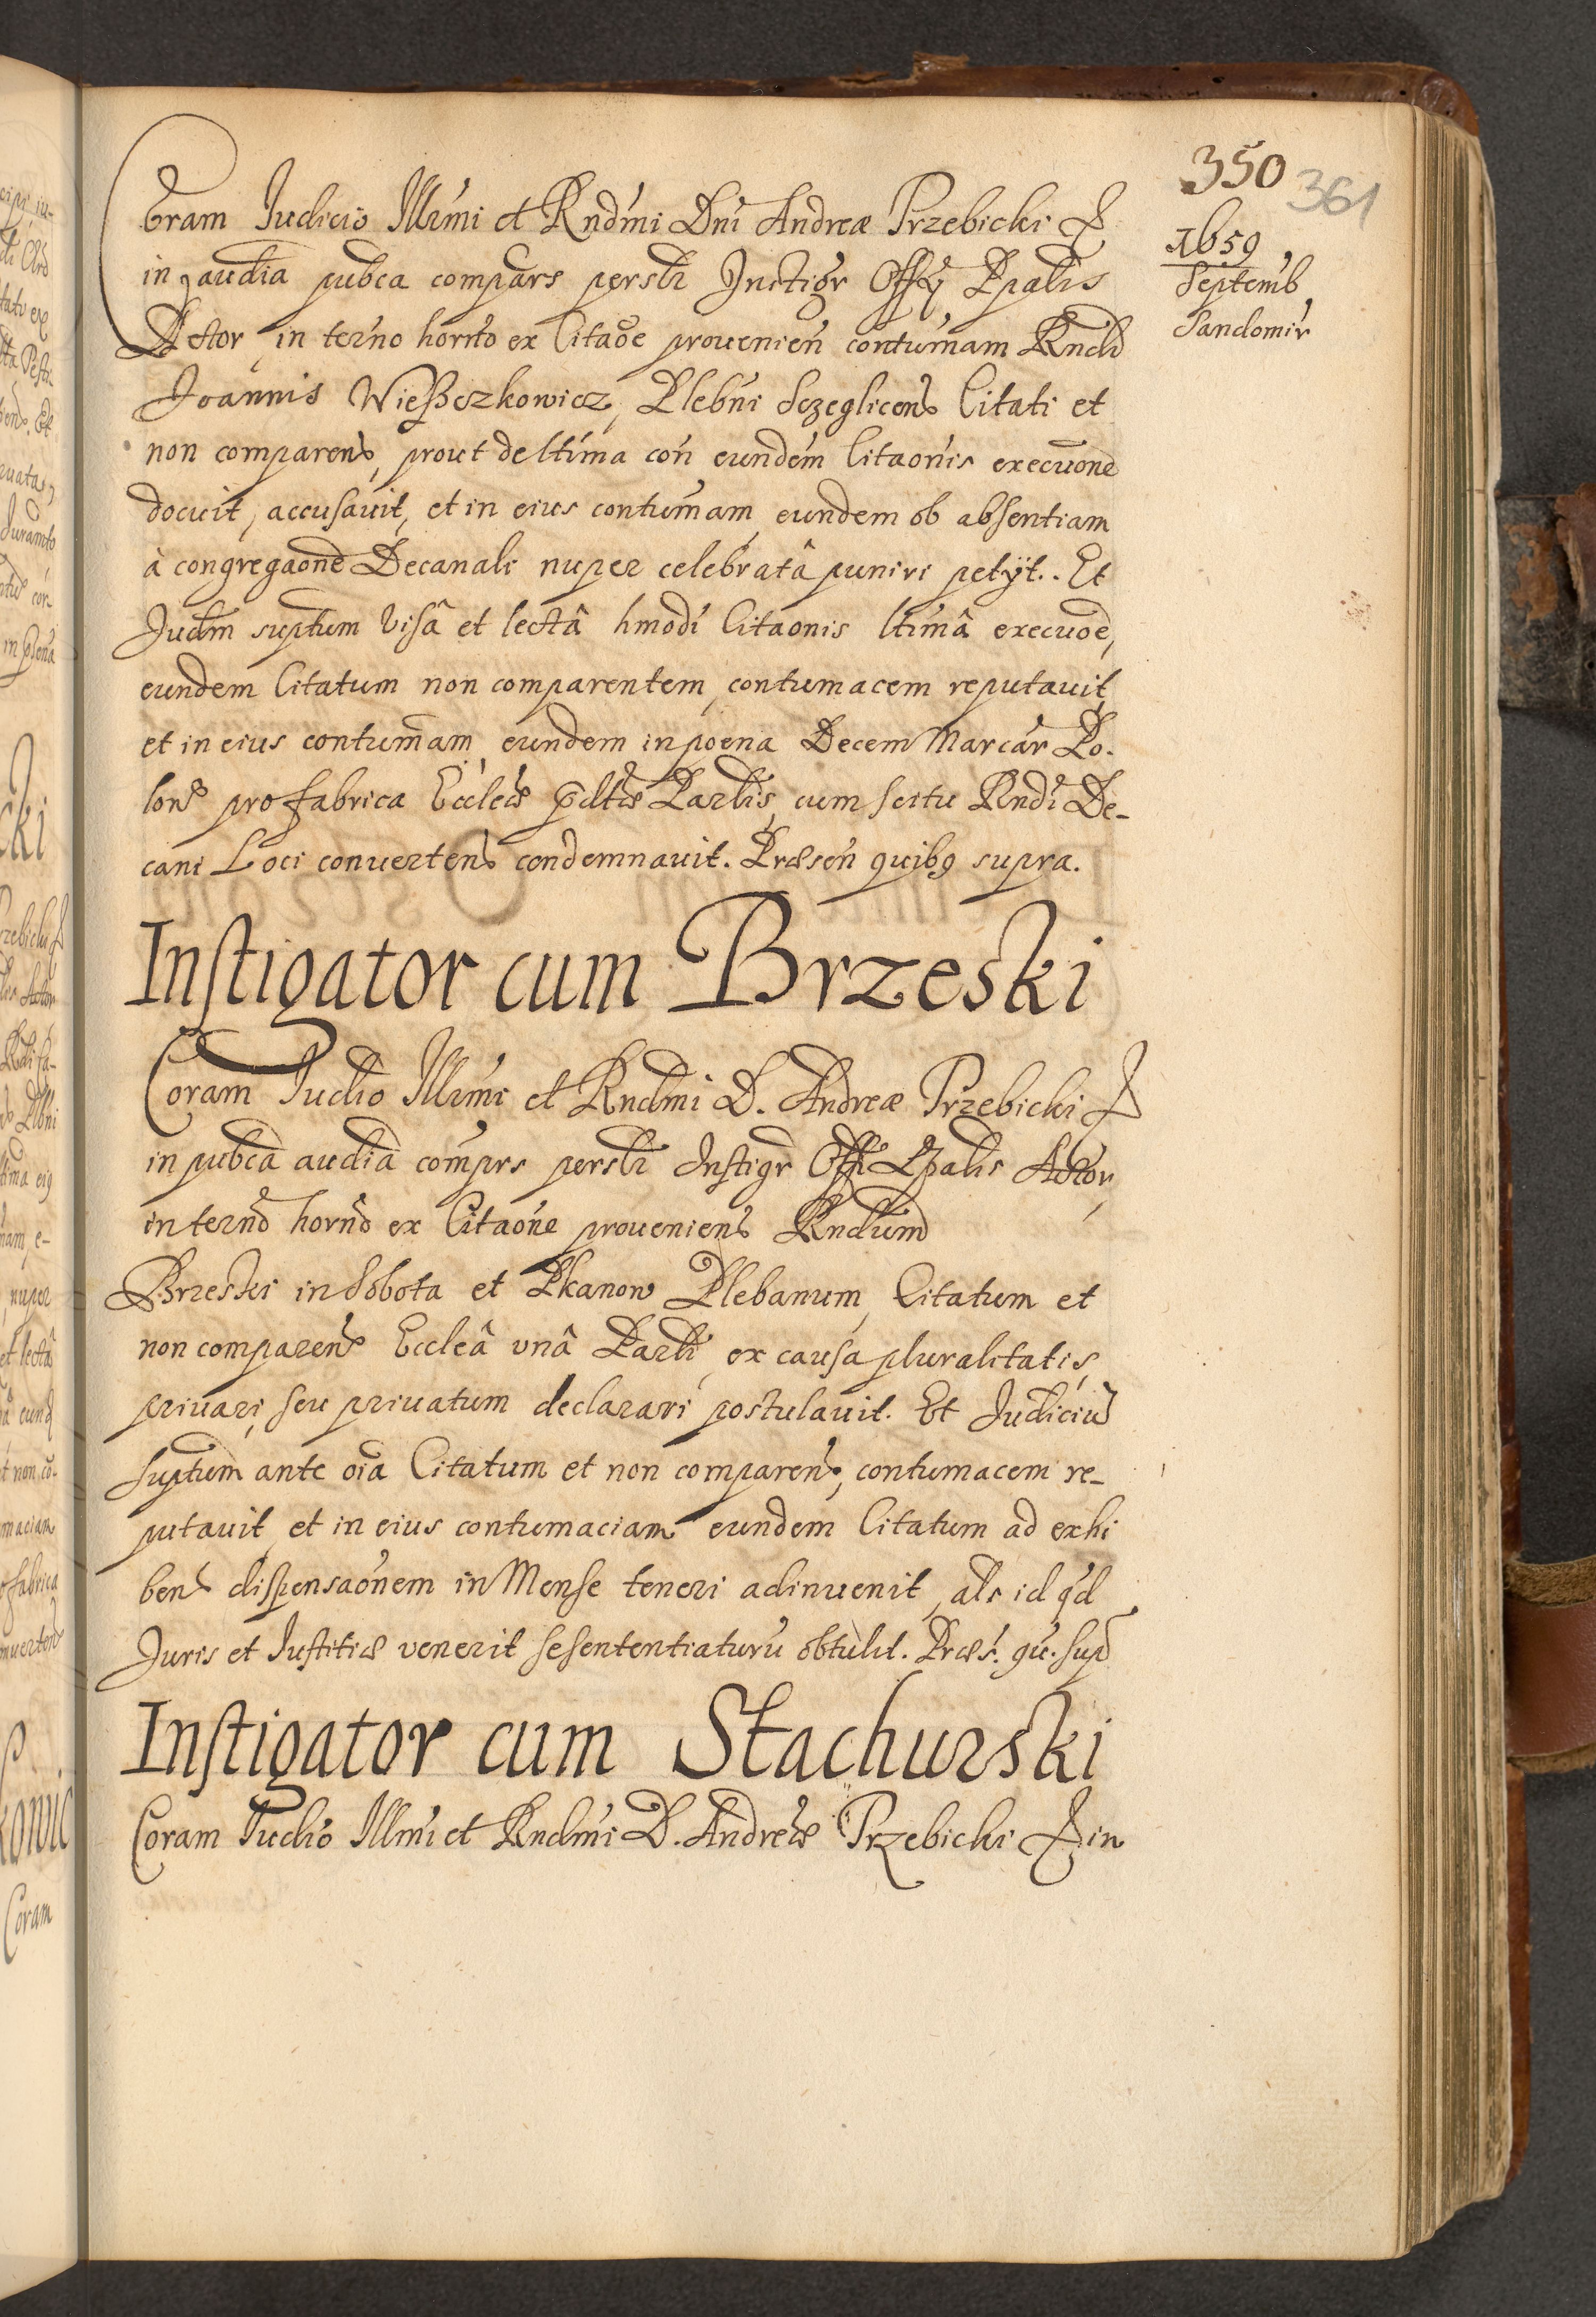 350 361
1659
Septemb
Sandomir
Coram Judicio Illmi et Rndmi Dni Andreæ Przebicki &
in audia pubca compars persłr Instigr Offy Epalis
Actor in terno hornto ex Citaoe prouenien contumam Rndi
Joannis Wießczkowicz, Plebni Sczeglicens Citati et
non comparens, prout de ltima con eundem Citaonis execuone
docuit, accusauit, et in eius contumam, eundem ob absentiam
à congregaone Decanali nuper celebratâ puniri petÿt. Et
Judm suptum visâ et lectâ hmodi Citaonis ltimâ execuoe,
eundem Citatum non comparentem, contumacem reputauit,
et in eius contumam, eundem in poena Decem Marcar Po-
lons pro fabrica Ecclæ pdtæ Parlis, cum scitu Rndi De-
cani Loci convertens condemnauit. Præsen quibg supra.
Instigator cum Brzeski
Coram Judio Illmi et Rndmi D. Andreæ Przebicki &
in pubca audia comprs persłr Instigr Offi Epalis Actor,
in terno horno ex Citaone proueniens Rndum
Brzeski in Sobota et Pkanow Plebanum, Citatum et
non comparens Eccleâ vnâ Parli, ex causa pluralitatis,
priuari, seu priuatum declarari postulauit. Et Judiciu
suptum ante oia Citatum et non comparens, contumacem re-
putauit, et in eius contumaciam eundem Citatum ad exhi
bens dispensaonem in Mense teneri adinuenit, als id qd
Juris et Justitiæ venerit se sententiaturu obtulit. Præs. qu. sup
Instigator cum Stachurski
Coram Judio Illmi et Rndmi D. Andreæ Przebicki & in